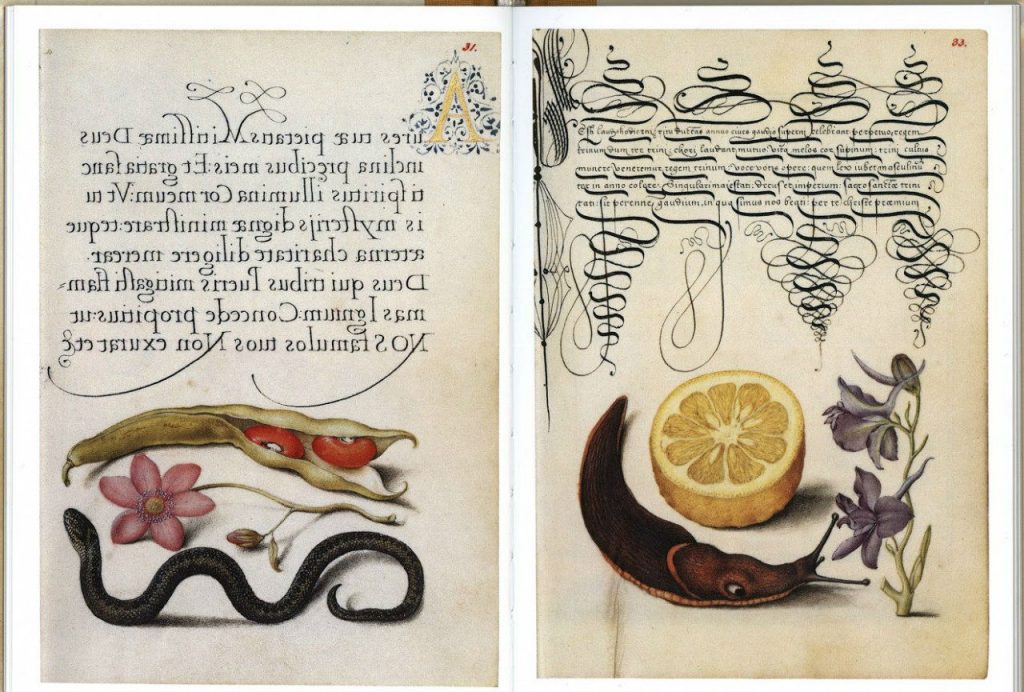 31.
Aures tuæ pietatis Mitissimæ Deus
inclina pręcibus meis: Et gratia sanc
ti spiritus illumina Cor meum: Vt tu
is mysterijs dignæ ministrare: teque
æterna charitate diligere merear.
Deus qui tribus Pueris mitigasti flam=
mas Ignium: Concede propitius: ut
NOS famulos tuos Non exurat etc
33.
annuo cives gaudio superni celebrant perpetuo, regem
trinum dum ter trini: chori laudant mutuo. melos cor supinum: trini cultus
munere veneremur regem trinum: voce opere: quem lex iubet masculinum
ter in anno colere. Singulari maiestati: decus et imperium: sacrosanctæ trini
tati: sit perenne, gaudium, in quo simus nos beati: per te christe præmium